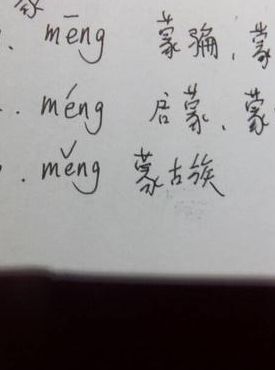 mēng 蒙骗、蒙
méng 启蒙、蒙
měng 蒙古族